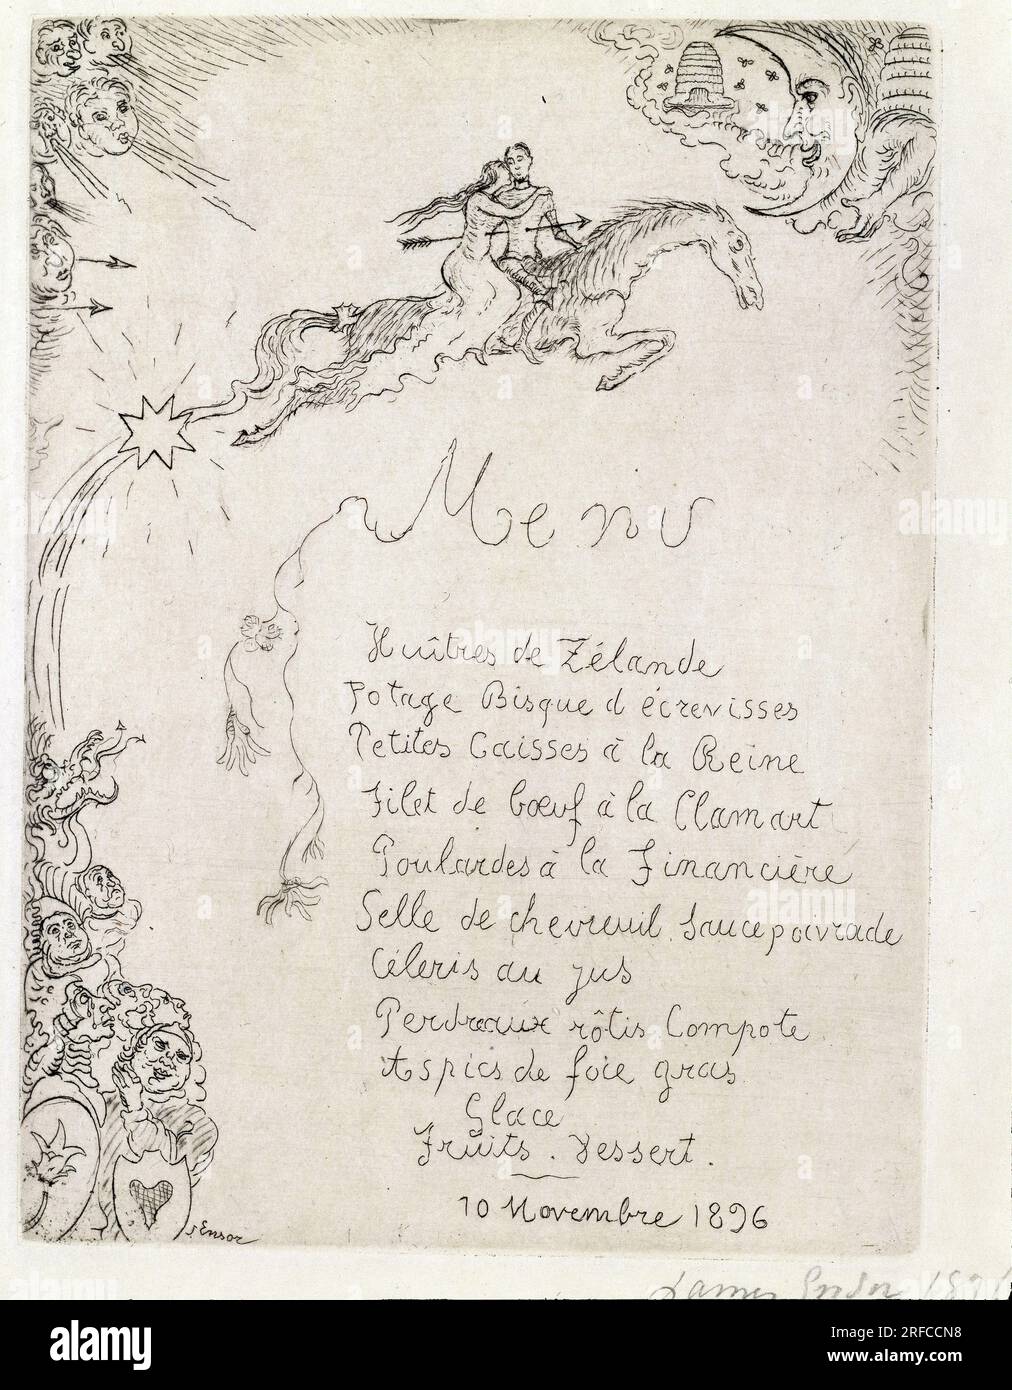 Menu
Huîtres de Zélande
Potage Bisque d écrevisses
Petites Caisses à la Reine
Filet de bœuf à la Clamart
Poulardes à la Financière
Selle de chevreuil Sauce poivrade
Céleris au jus
Perdreaux rôtis Compote
Aspics de foie gras
Glace
Fruits. Dessert.
10 Novembre 1896
J Ensor
James Ensor
alamy
Image ID: 2RFCCN8
www.alamy.com